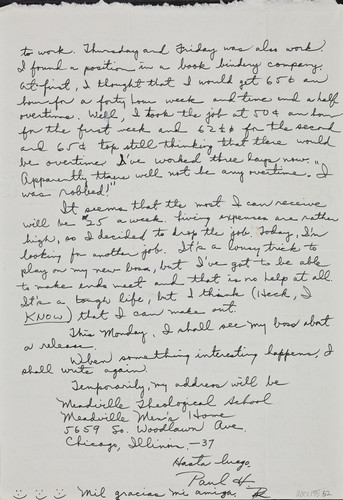 to work. Thursday and Friday was also work.
I found a position in a book bindery company.
At first, I thought that I would get 65¢ an
hour for a forty hour week and time and a half
overtime. Well, I took the job at 50¢ an hour
for the first week and 62½¢ for the second
and 65¢ top still thinking that there would
be overtime. I've worked three days now, "
Apparently there will not be any overtime. I
was robbed!"
It seems that the most I can receive
will be $25 a week. Living expenses are rather
high, so I decided to drop the job. Today, I'm
looking for another job. It's a lousy trick to
play on my new boss, but I've got to be able
to make ends meet and that is no help at all.
It's a tough life, but I think (Heck, I
KNOW) that I can make out.
This Monday, I shall see my boss about
a release.
When something interesting happens, I
shall write again.
Temporarily, my address will be
Meadville Theological School
Meadville Men's Home
5659 So. Woodlawn Ave.
Chicago, Illinois. -37
Hasta luego,
Paul H.
Mil gracias mi amiga.